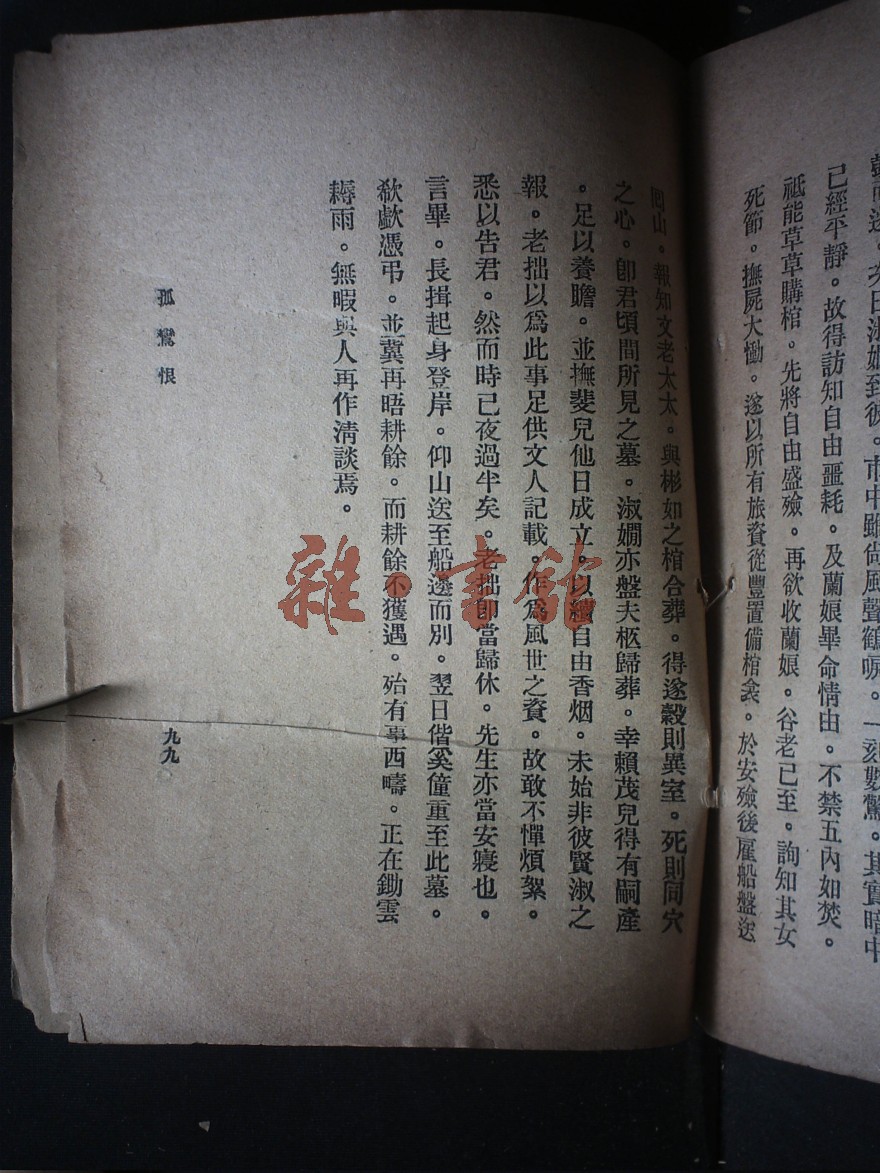 已經平靜。故得訪知自由噩耗。及蘭娘畢命情由。不禁五內如焚。
祗能草草購棺。先將自由盛殮。再欲收蘭娘。谷老已至。詢知其女
死節。撫屍大慟。遂以所有旅資從豐置備棺衾。於安殮後雇船盤送
回山。報知文老太太。與彬如之棺合葬。得遂穀則異室。死則同穴
之心。卽君頃間所見之墓。淑嫺亦盤夫柩歸葬。幸賴茂兒得有嗣產
。足以養贍。並撫斐兒他日成立。以續自由香烟。未始非彼賢淑之
報。老拙以爲此事足供文人記載。作爲風世之資。故敢不憚煩絮。
悉以告君。然而時已夜過半矣。老拙卽當歸休。先生亦當安寢也。
言畢。長揖起身登岸。仰山送至船邊而別。翌日偕奚僮重至此墓。
欷歔憑弔。並冀再晤耕餘。而耕餘不獲遇。殆有事西疇。正在鋤雲
耨雨。無暇與人再作淸談焉。
孤鸞恨
九九
雜·書館